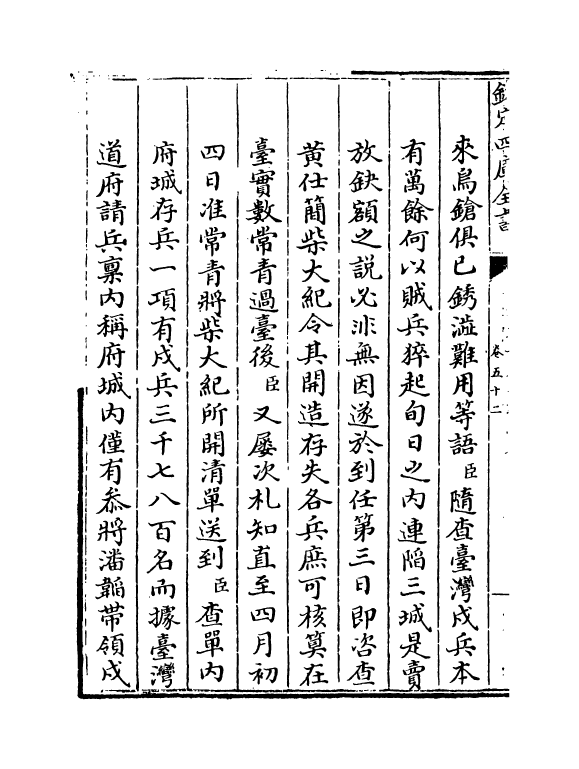 欽定四庫全書
卷五十二
來鳥鎗俱已銹澁難用等語臣隨查臺灣戍兵本
有萬餘何以賊兵猝起旬日之内連陷三城是賣
放缺額之說必非無因遂於到任第三日即咨查
黄仕簡柴大紀令其開造存失各兵庶可核算在
臺實數常青過臺後臣又屢次札知直至四月初
四日准常青將柴大紀所開清單送到臣查單内
府城存兵一項有戍兵三千七八百名而據臺灣
道府請兵禀内稱府城内僅有叅將潘韜帶領戍